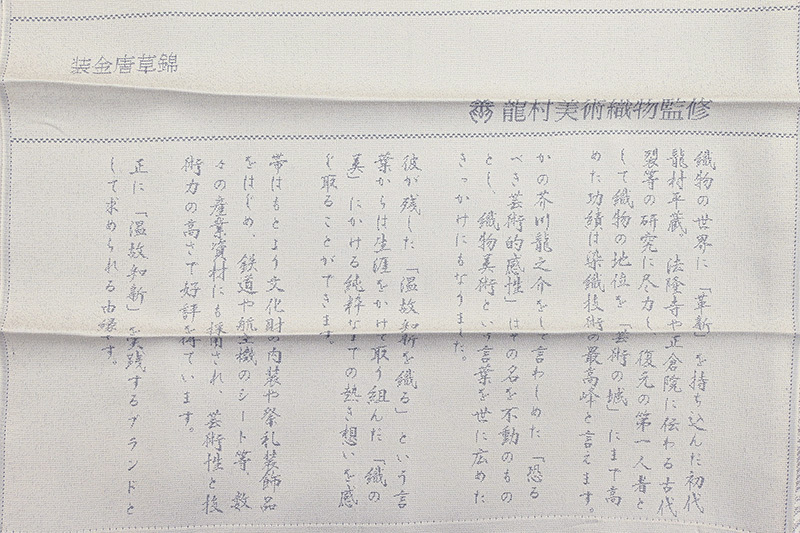 装金唐草錦
龍村美術織物監修
織物の世界に「革新」を持ち込んだ初代
龍村平蔵。法隆寺や正倉院に伝わる古代
裂等の研究に尽力し、復元の第一人者と
して織物の地位を「芸術の域」にまで高
めた功績は染織技術の最高峰と言えます。
かの芥川龍之介をして言わしめた「恐る
べき芸術的感性」はその名を不動のもの
とし、織物美術という言葉を世に広めた
きっかけにもなりました。
彼が残した「温故知新を織る」という言
葉からは生涯をかけて取り組んだ「織の
美」にかける純粋なまでの熱き想いを感
じ取ることができます。
帯はもとより文化財の内装や祭礼装飾品
をはじめ、鉄道や航空機のシート等、数
々の産業資材にも採用され、芸術性と技
術力の高さで好評を得ています。
正に「温故知新」を実践するブランドと
して求められる由縁です。